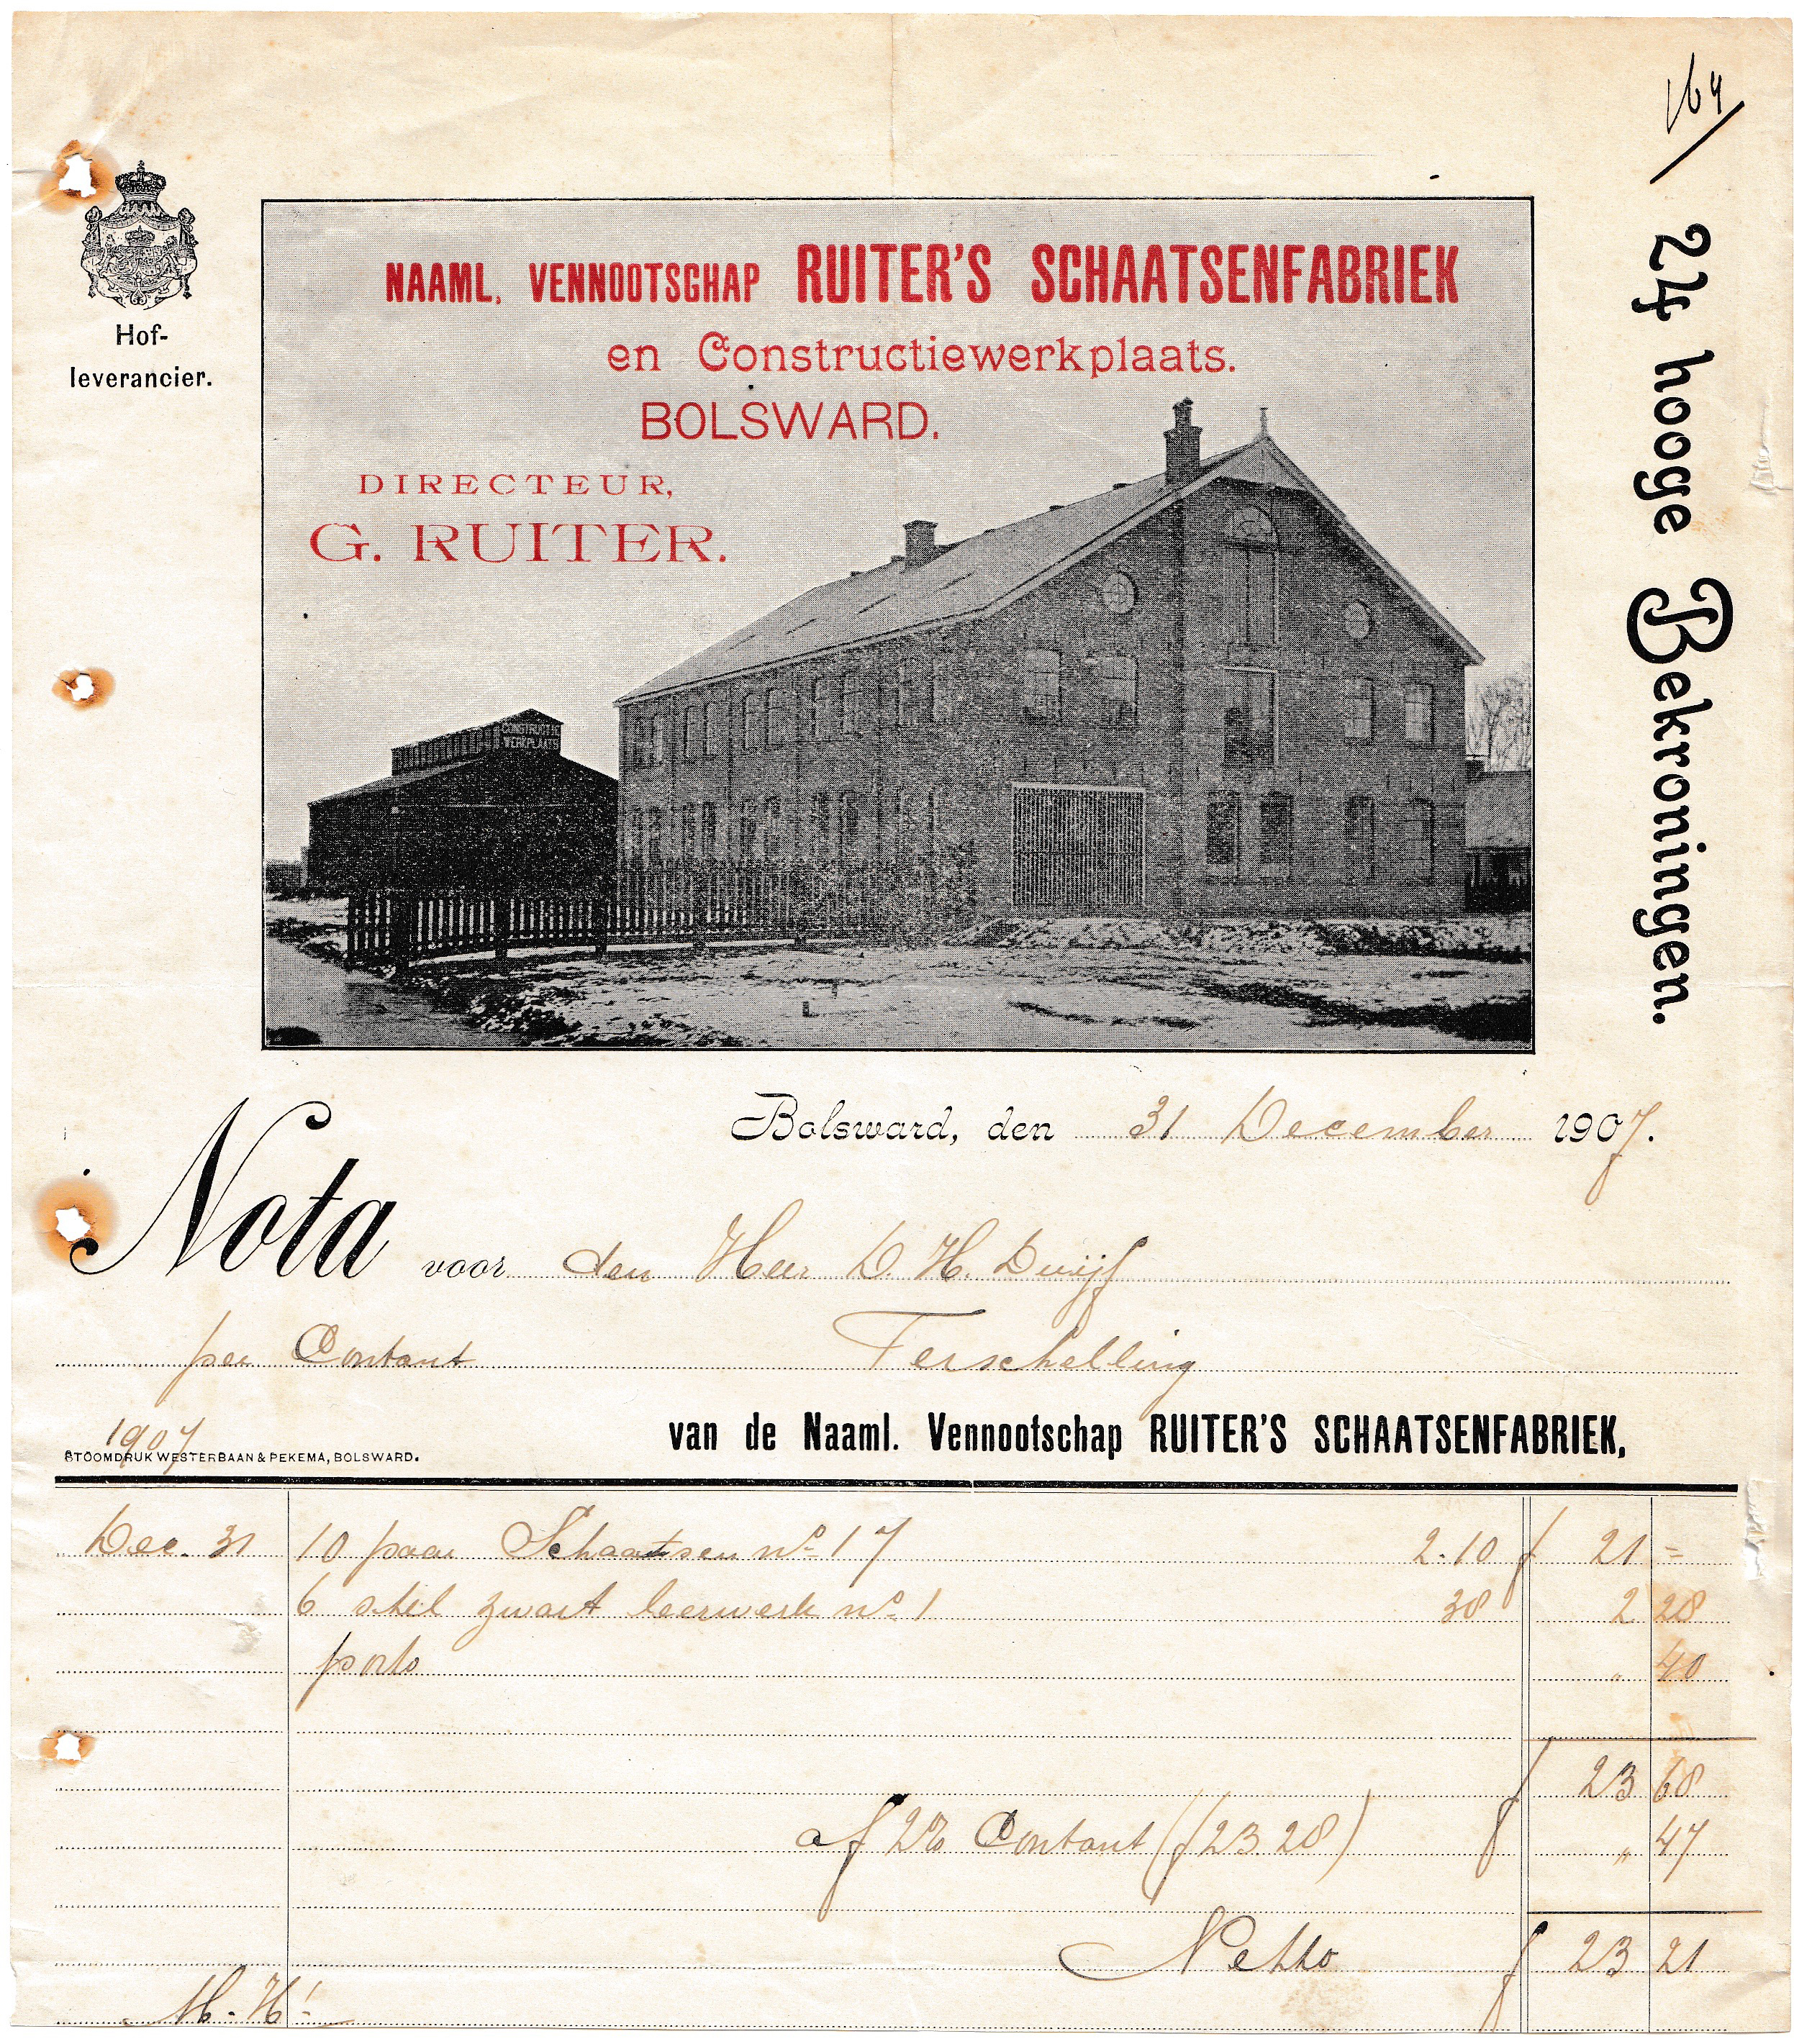 164
Hof-
leverancier.
NAAML. VENNOOTSCHAP RUITER'S SCHAATSENFABRIEK
en Constructiewerkplaats.
BOLSWARD.
DIRECTEUR,
G. RUITER.
CONSTRUCTIE
WERKPLAATS
24 hooge Bekroningen.
Bolsward, den 31 December 1907.
Nota voor den Heer D. H. Duijf
per Contant Terschelling
van de Naaml. Vennootschap RUITER'S SCHAATSENFABRIEK,
1907
STOOMDRUK WESTERBAAN & PEKEMA, BOLSWARD.
Dec. 31 10 paar Schaatsen no 17 2.10 f 21 =
6 stel zwart leerwerk no 1 38 2 28
porto " 40
f 23 68
af 2% Contant (f 23.28) f " 47
Netto f 23 21
M. H!